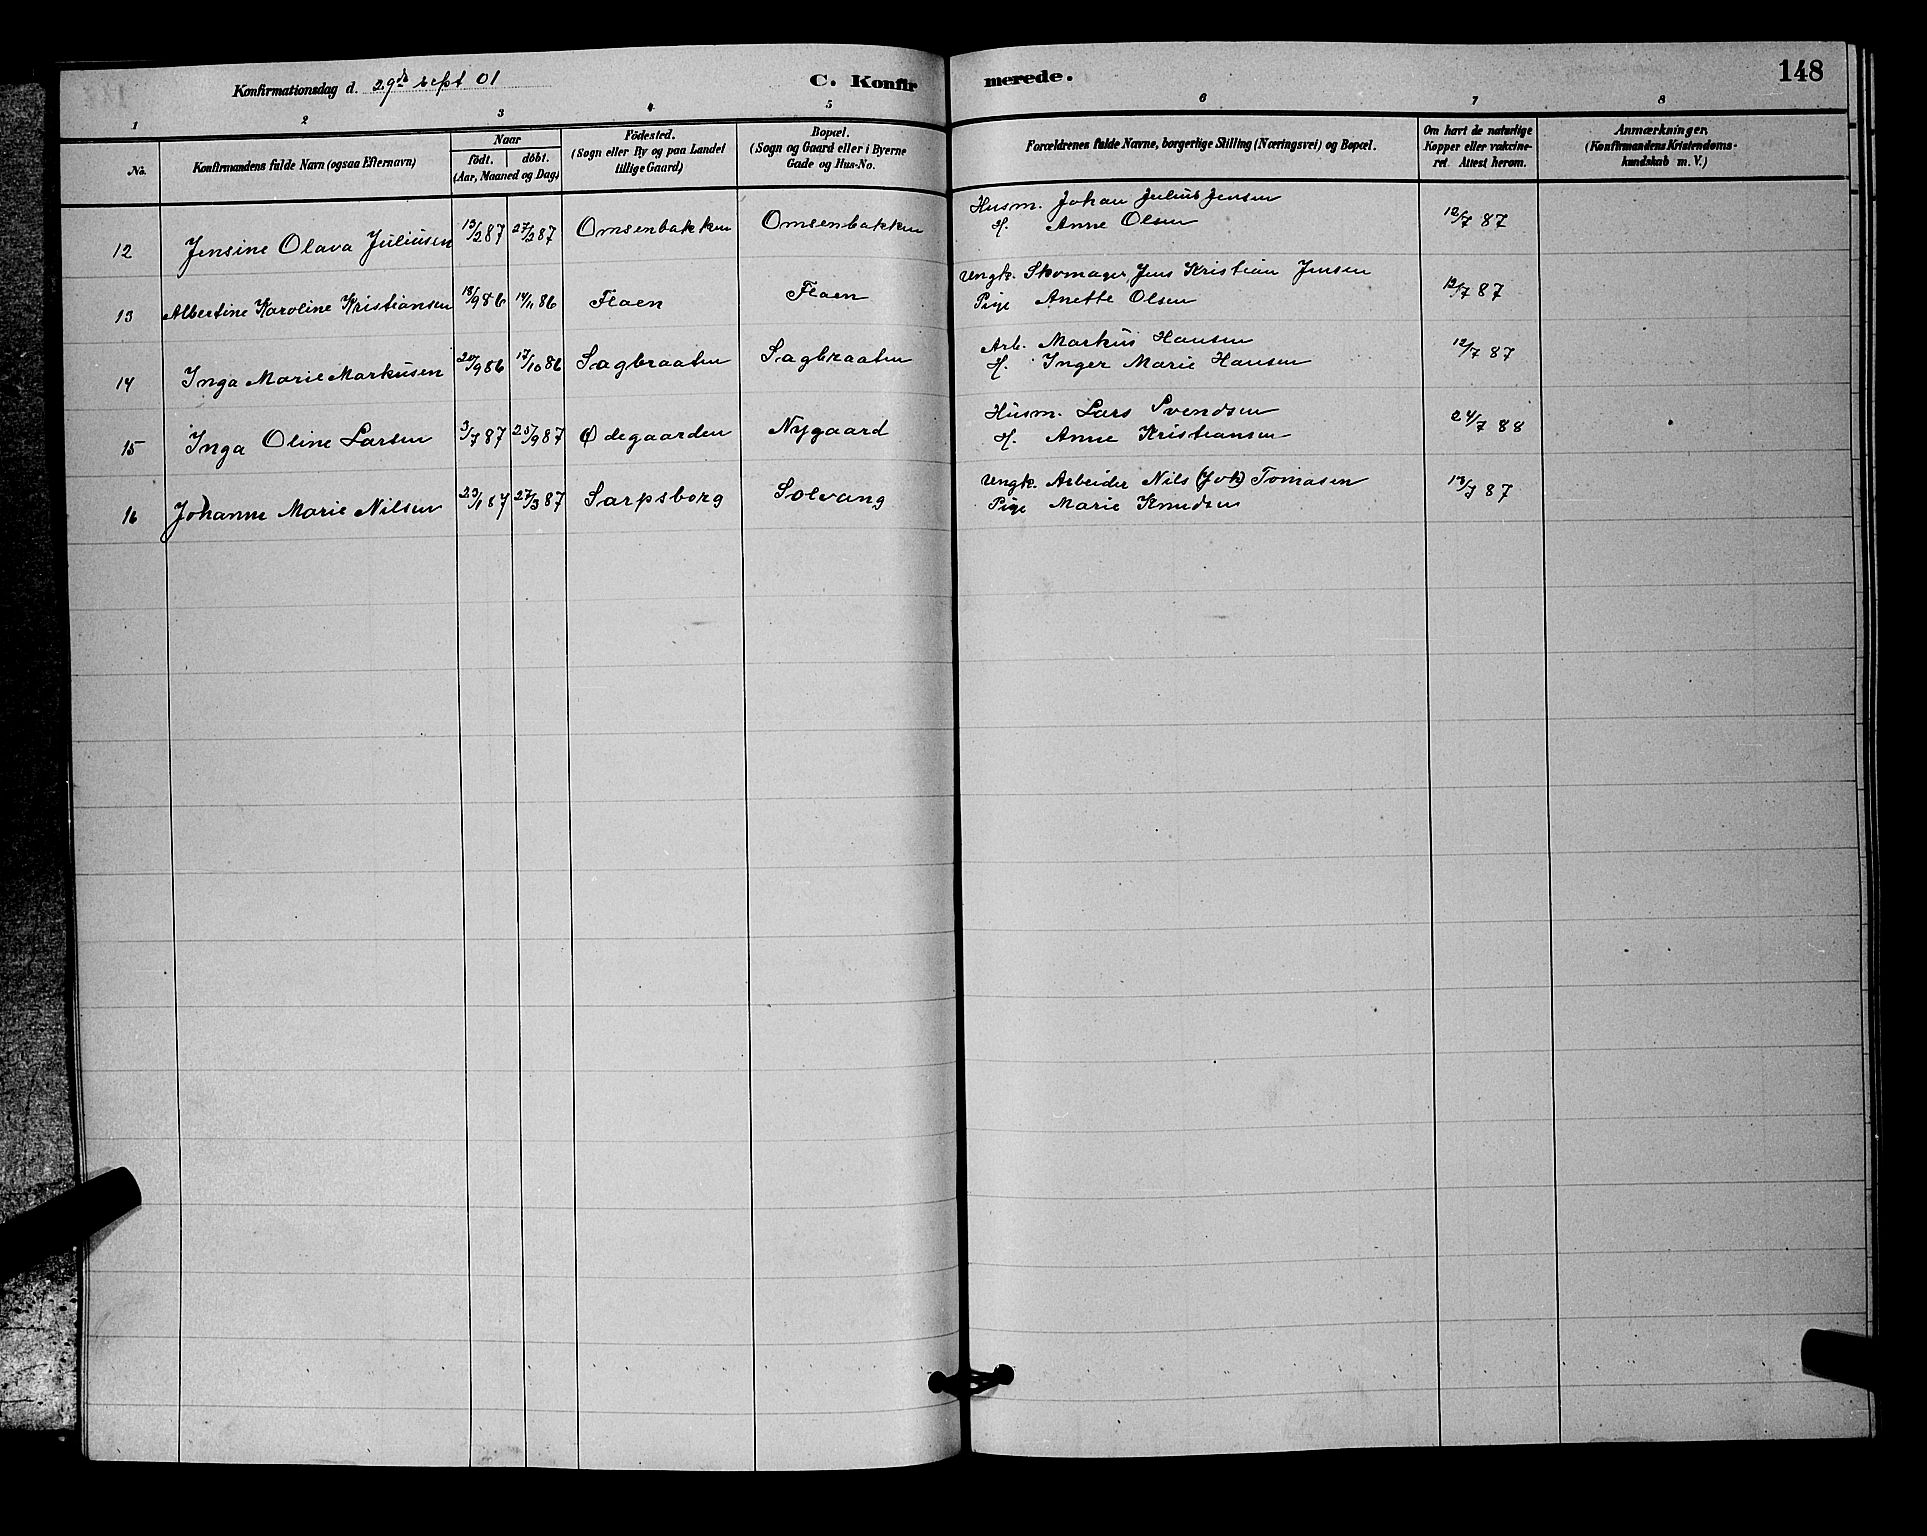 148
Konfirmationsdag d. 29de sept 01
C. Konfirmerede.
1 2 3 4 5 6 7 8
No.
Konfirmandens fulde Navn (ogsaa Efternavn)
Naar
født. døbt.
(Aar, Maaned og Dag)
Födested.
(Sogn eller By og paa Landet
tillige Gaard)
Bopæl.
(Sogn og Gaard eller i Byerne
Gade og Hus-No.
Forældrenes fulde Navne, borgerlige Stilling (Næringsvei) og Bopæl.
Om havt de naturlige
Kopper eller vaksine-
ret. Attest herom.
Anmærkninger.
(Konfirmandens Kristendoms-
kundskab m. V.)
12 Jensine Olava Juliusen 13/2 87 27/3 87 Omsenbakken Omsenbakken Husm. Johan Julius Jensen 12/7 87
H. Anne Olsen
13 Albertine Karoline Kristiansen 18/9 86 14/11 86 Flaen Flaen Ungk. Skomager Jens Kristian Jensen 12/7 87
Pige Anette Olsen
14 Inga Marie Markusen 20/9 86 17/10 86 Sagbraaten Sagbraaten Arb. Markus Hansen 12/7 87
H. Inger Marie Hansen
15 Inga Oline Larsen 3/7 87 25/9 87 Ødegaarden Nygaard Husm. Lars Svendsen 24/7 88
H. Anne Kristiansen
16 Johanne Marie Nilsen 23/1 87 27/3 87 Sarpsborg Solvang Ungk. Arbeider Nils (Joh) Tomasen 87
Pige Marie Knudsen